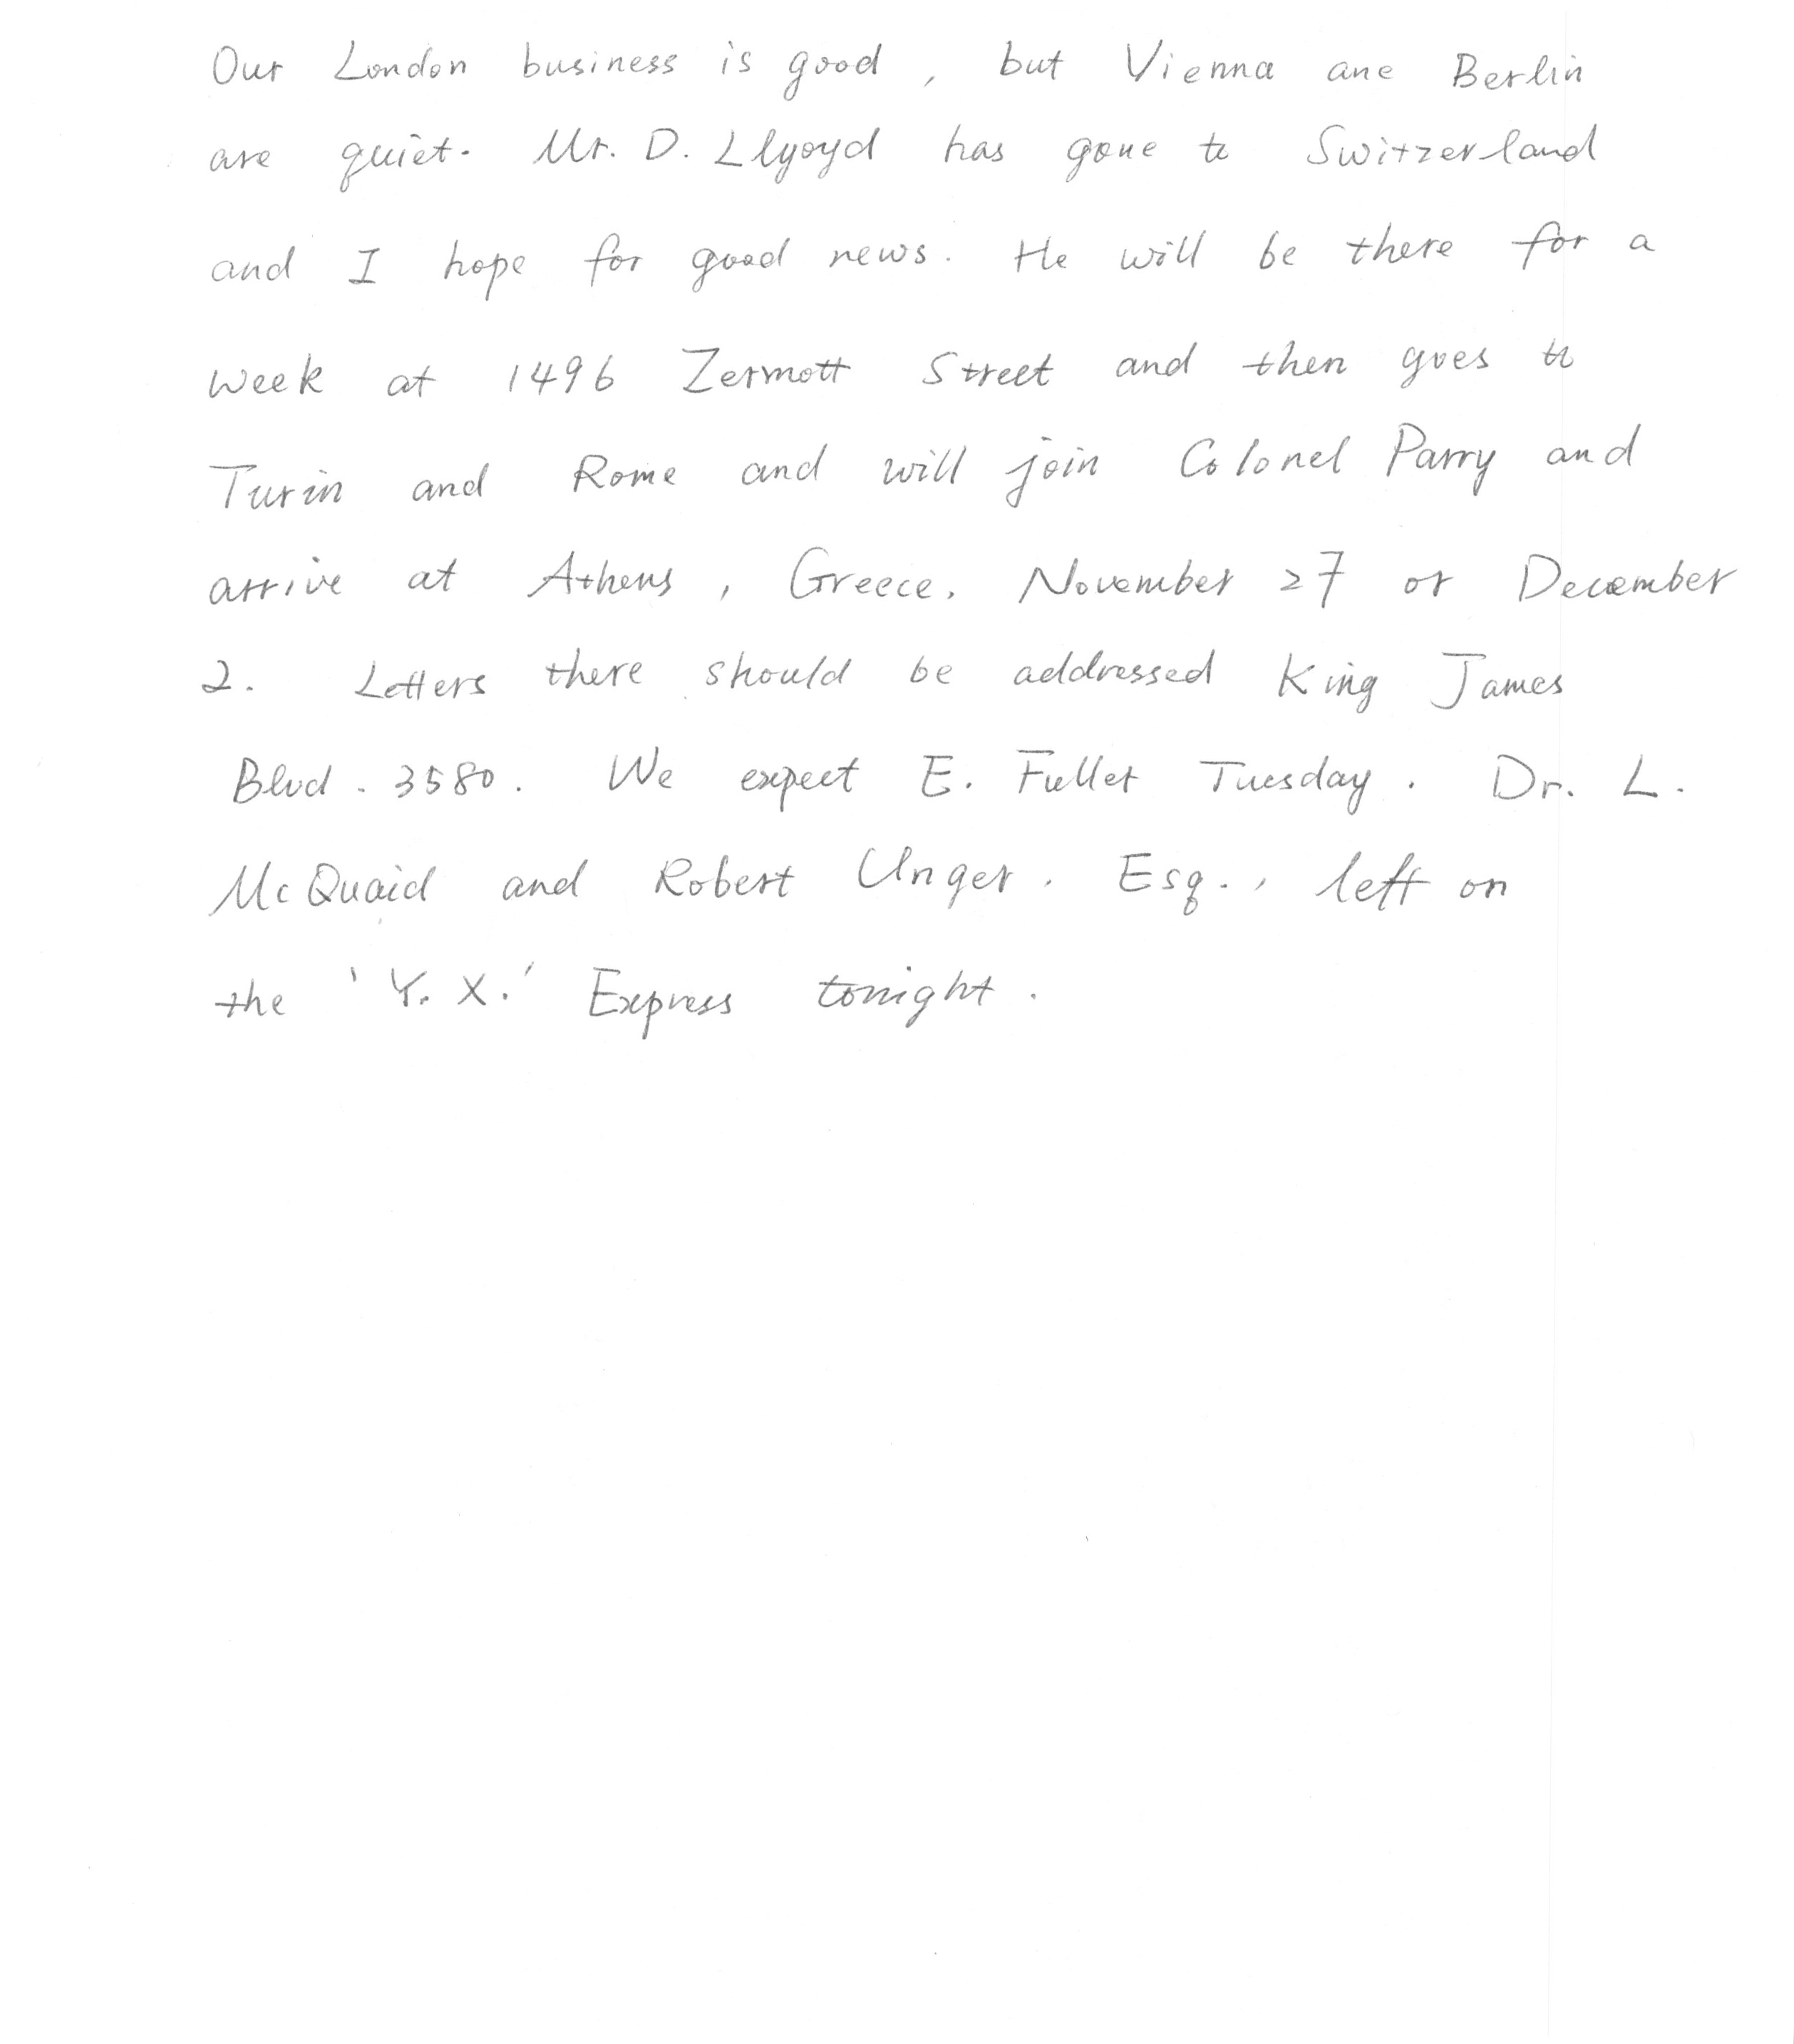 Our London business is good, but Vienna ane Berlin
are quiet. Mr. D. Llyoyd has gone to Switzerland
and I hope for good news. He will be there for a
week at 1496 Zermott Street and then goes to
Turin and Rome and will join Colonel Parry and
arrive at Athens, Greece, November 27 or December
2. Letters there should be addressed King James
Blvd. 3580. We expect E. Fuller Tuesday. Dr. L.
McQuaid and Robert Unger. Esq., left on
the 'Y. X.' Express tonight.